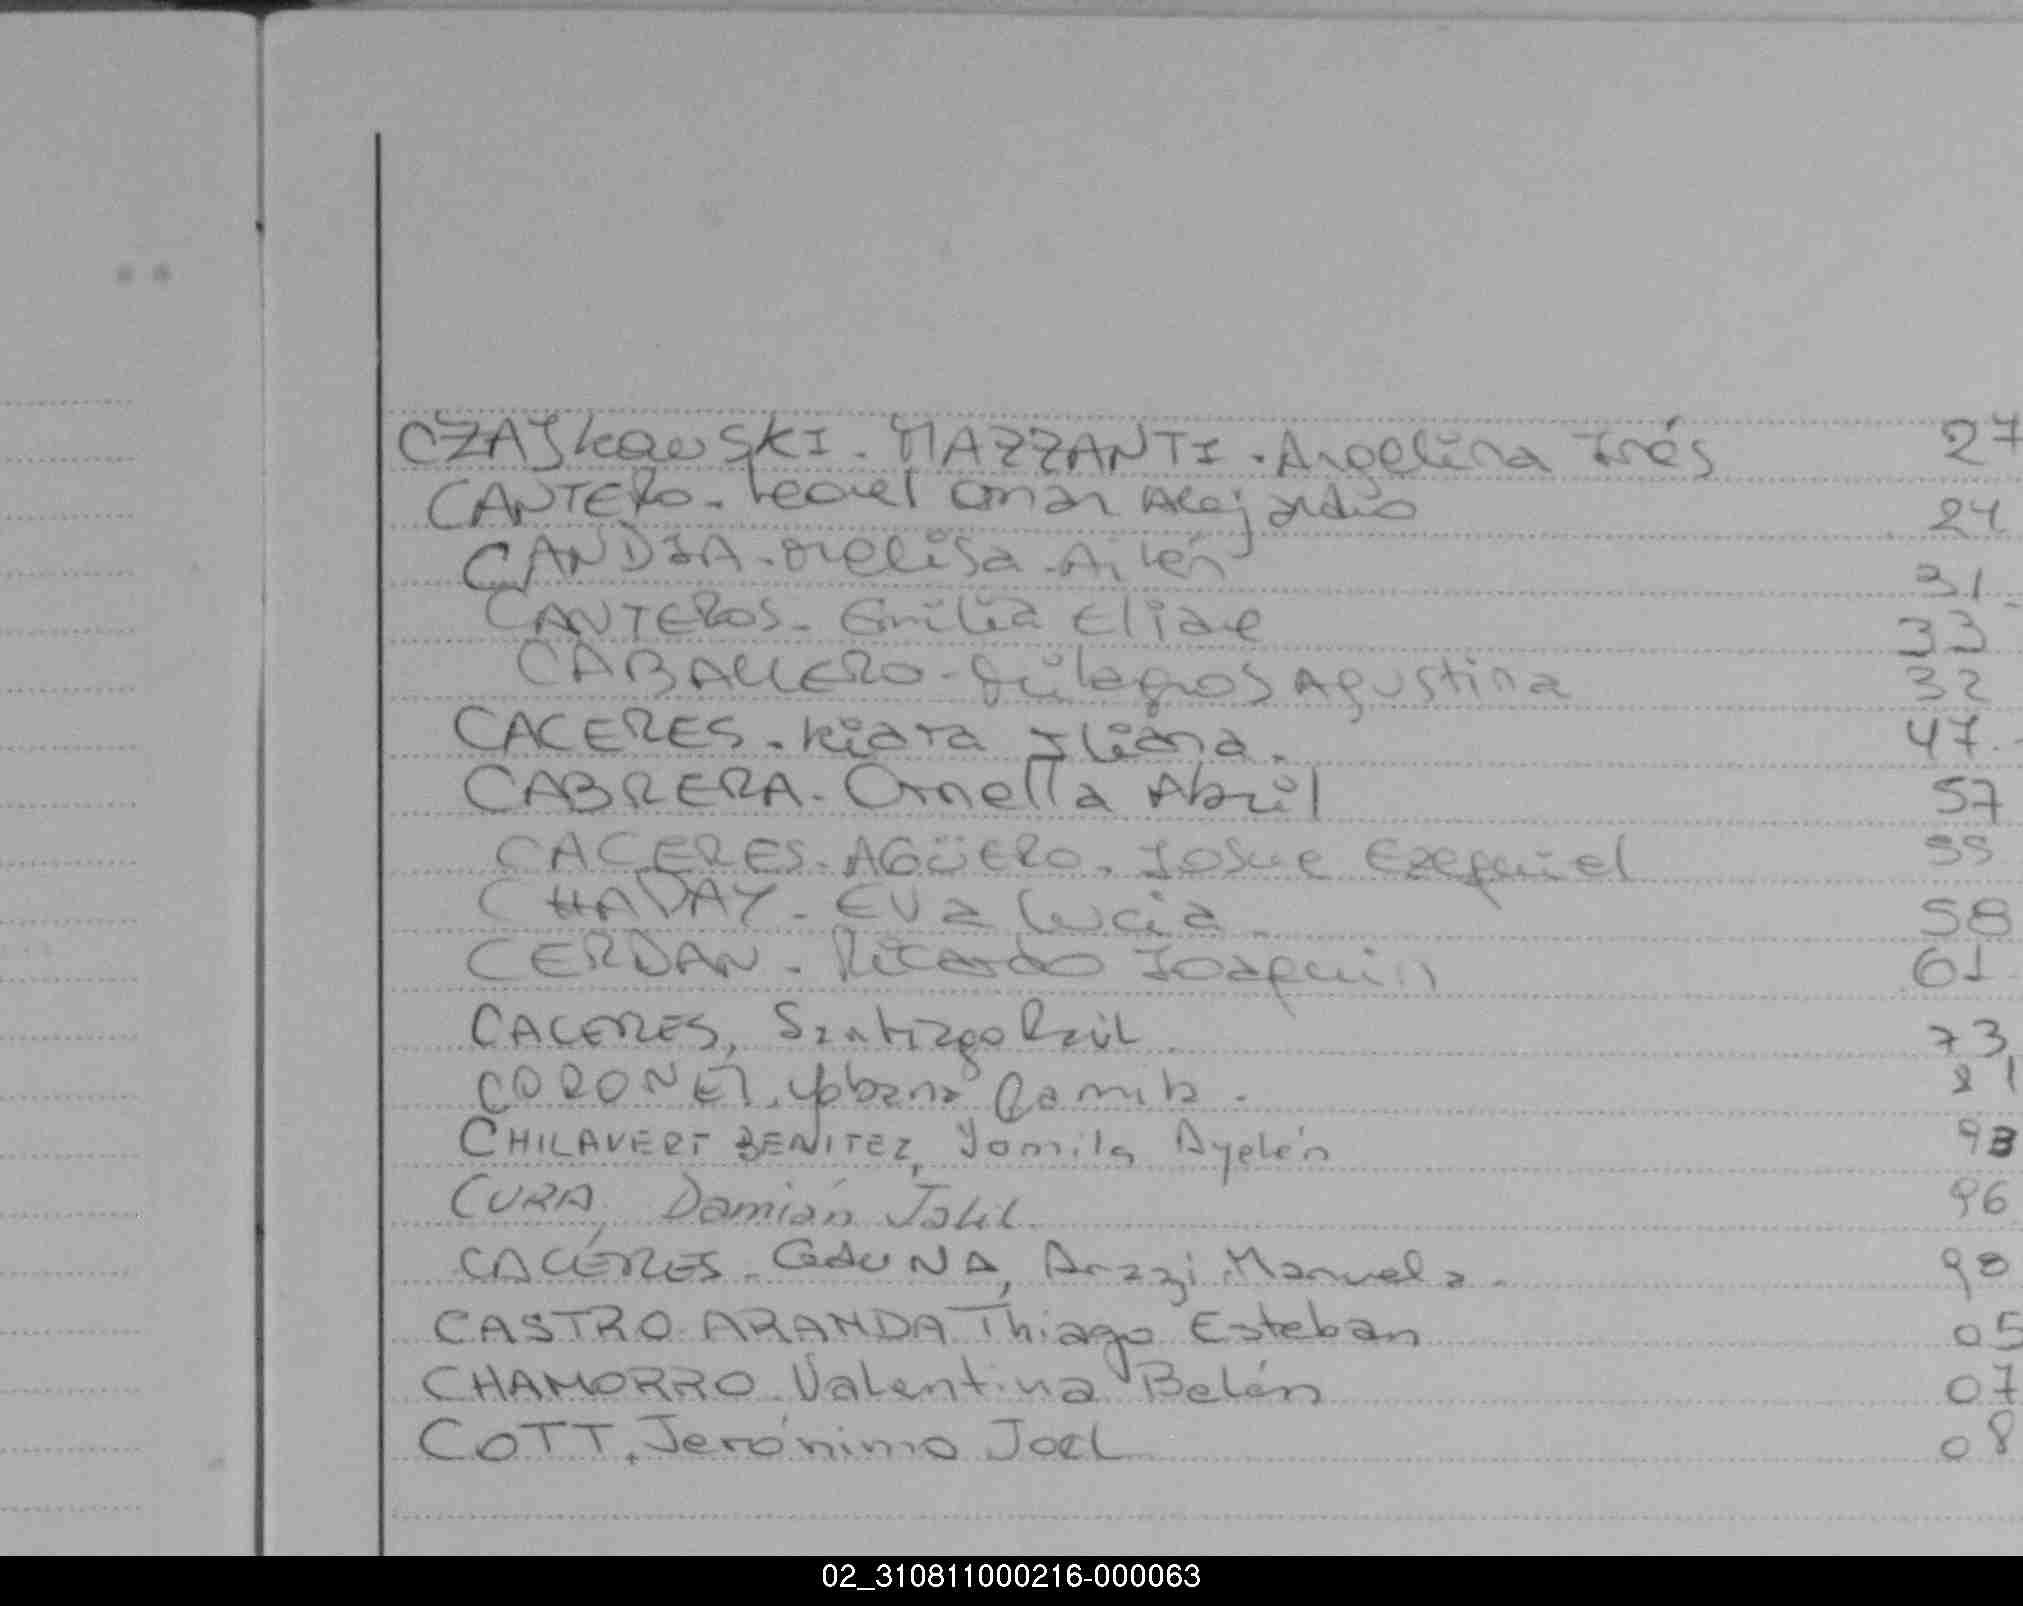 CZAJkowSKI. MAZZANTI. Angelina Inés 27
CANTERO. Leonel Omar Alejandro 24
CANDIA. Melisa Ailén 31
CANTEROS. Emilia Eliane 33
CABALLERO. Milagros Agustina 32
CACERES. Kiara Iliana. 47.
CABRERA. Ornella Abril 57
CACERES. AGÜERO. Josue Ezequiel 55
CHADAY. Eva Lucia 58
CERDAN. Ricardo Joaquin 61
CACERES, Santiago Raúl 73
CORONEL. Camila. 81
CHILAVERT BENITEZ, Yamila Ayelén 93
CURA, Damián 96
CACÉRES. GAUNA, Arazi Manuela. 98
CASTRO ARANDA Thiago Esteban 05
CHAMORRO. Valentina Belén 07
COTT. Jerónimo Joel 08
02_310811000216-000063